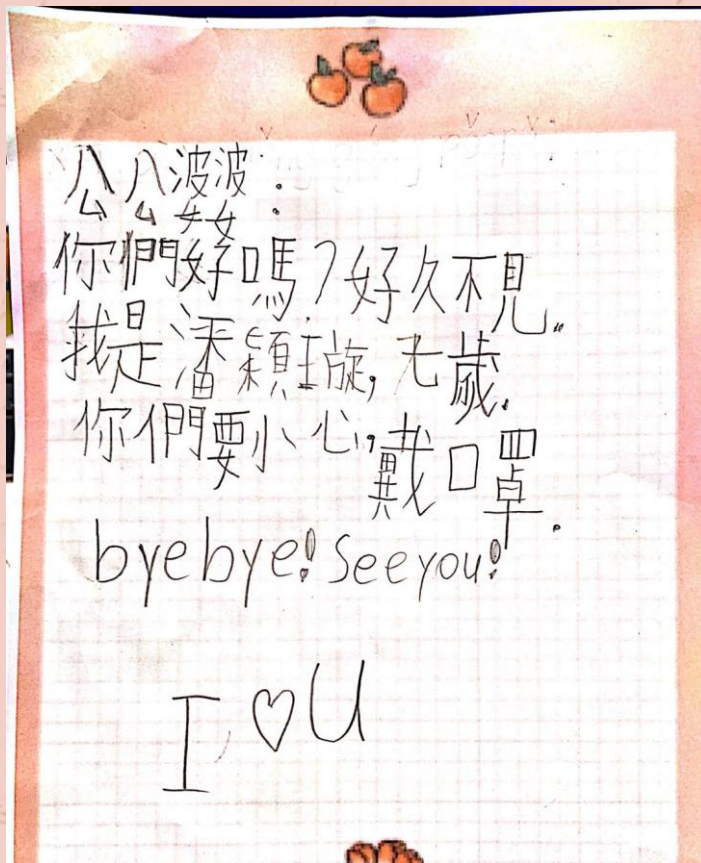 公公婆婆:
你們好嗎?好久不見.
我是潘穎璇,七歲.
你們要小心,戴口罩.
byebye! See you!
I ♡ U